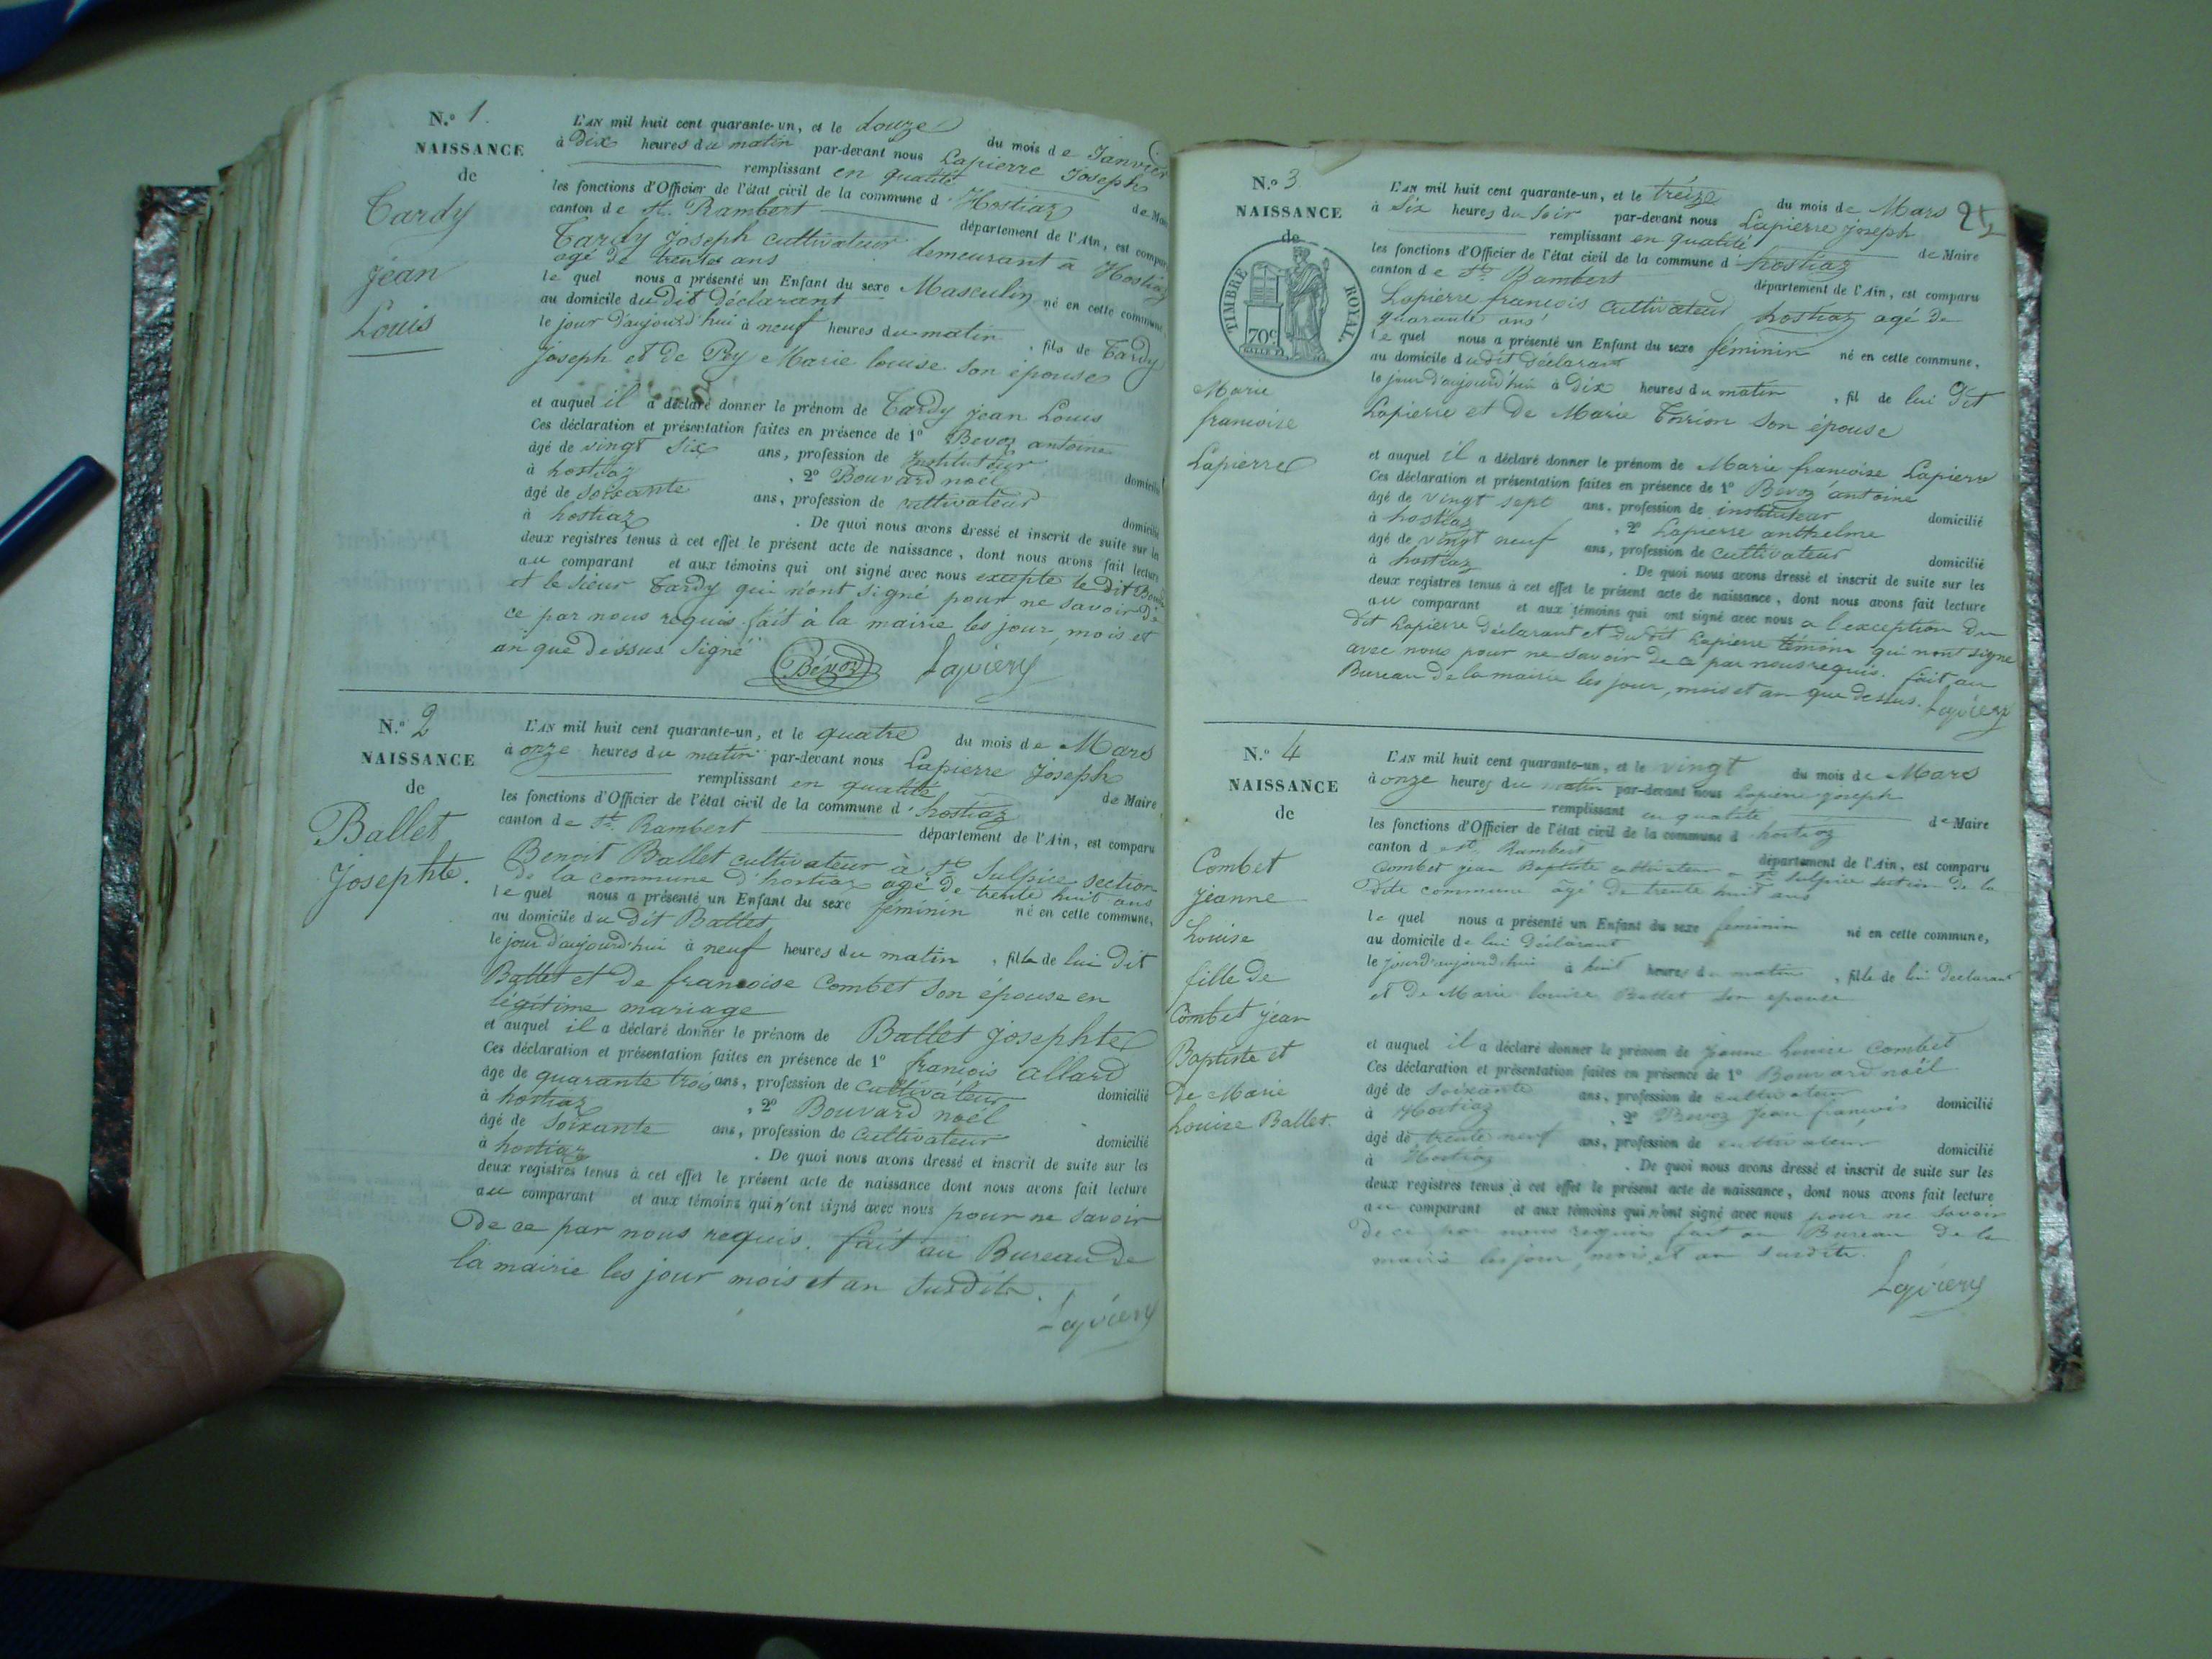 N.º 1.
NAISSANCE
de
Tardy
jean
Louis
L'AN mil huit cent quarante-un, et le douze du mois de Janvier
à Dix heures du matin par-devant nous Lapierre Joseph
remplissant en qualité de Maire
les fonctions d'Officier de l'état civil de la commune d'Hostiaz
canton de St. Rambert département de l'Ain, est comparu
Tardy Joseph cultivateur demeurant à Hostiaz
agé de trente ans
le quel nous a présenté un Enfant du sexe Masculin né en cette commune,
au domicile du dit Déclarant
le jour d'aujourd'hui à neuf heures du matin, fils de Tardy
Joseph et de Pey Marie louise son épouse
et auquel il a déclaré donner le prénom de Tardy jean Louis
Ces déclaration et présentation faites en présence de 1º Bevoz antoine
âgé de vingt six ans, profession de Instituteur domicilié
à hostiaz, 2º Bouvard noël
âgé de soixante ans, profession de cultivateur domicilié
à hostiaz. De quoi nous avons dressé et inscrit de suite sur les
deux registres tenus à cet effet le présent acte de naissance, dont nous avons fait lecture
au comparant et aux témoins qui ont signé avec nous excepté le dit
et le sieur Tardy qui n'ont signé pour ne savoir De
ce par nous requis fait à la mairie les jour, mois et
an que dessus Signé Bévoz Lapierre
N.º 2
NAISSANCE
de
Ballet
Josephte.
L'AN mil huit cent quarante-un, et le quatre du mois de Mars
à onze heures du matin par-devant nous Lapierre joseph
remplissant en qualité de Maire
les fonctions d'Officier de l'état civil de la commune d'hostiaz
canton de St. Rambert département de l'Ain, est comparu
Benoit Ballet cultivateur à St Sulpice section
de la commune d'hostiaz agé de trente huit ans
le quel nous a présenté un Enfant du sexe féminin né en cette commune,
au domicile du dit Ballet
le jour d'aujourd'hui à neuf heures du matin, fille de lui dit
Ballet et de francoise Combet son épouse en
légitime mariage
et auquel il a déclaré donner le prénom de Ballet josephte
Ces déclaration et présentation faites en présence de 1º francois allard
âgé de quarante trois ans, profession de cultivateur domicilié
à hostiaz, 2º Bouvard noël
âgé de Soixante ans, profession de cultivateur domicilié
à hostiaz. De quoi nous avons dressé et inscrit de suite sur les
deux registres tenus à cet effet le présent acte de naissance dont nous avons fait lecture
au comparant et aux témoins qui n'ont signé avec nous pour ne savoir
De ce par nous requis. fait au Bureau de
la mairie les jour mois et an susdits.
Lapierre
N.º 3
NAISSANCE
de
TIMBRE ROYAL
70c
Marie
francoise
Lapierre
25
L'AN mil huit cent quarante-un, et le treize du mois de Mars
à Six heures du Soir par-devant nous Lapierre joseph
remplissant en qualité de Maire
les fonctions d'Officier de l'état civil de la commune d'hostiaz
canton de St Rambert département de l'Ain, est comparu
Lapierre francois cultivateur hostiaz agé de
quarante ans
le quel nous a présenté un Enfant du sexe féminin né en cette commune,
au domicile du dit Déclarant
le jour d'aujourd'hui à Dix heures du matin, fil de lui Dit
Lapierre et de Marie Thrion son épouse
et auquel il a déclaré donner le prénom de Marie francoise Lapierre
Ces déclaration et présentation faites en présence de 1º Bevoz antoine
âgé de vingt sept ans, profession de instituteur domicilié
à hostiaz, 2º Lapierre anthelme
âgé de vingt neuf ans, profession de cultivateur domicilié
à hostiaz. De quoi nous avons dressé et inscrit de suite sur les
deux registres tenus à cet effet le présent acte de naissance, dont nous avons fait lecture
au comparant et aux témoins qui ont signé avec nous a l'exception du
dit Lapierre Déclarant et du dit Lapierre témoin qui n'ont signé
avec nous pour ne savoir de ce par nous requis. fait au
Bureau de la mairie les jour, mois et an que dessus. Lapierre
N.º 4
NAISSANCE
de
Combet
jeanne
Louise
fille de
Combet jean
Baptiste et
de Marie
Louise Ballet.
L'AN mil huit cent quarante-un, et le vingt du mois de Mars
à onze heures du matin par-devant nous Lapierre joseph
remplissant en qualité de Maire
les fonctions d'Officier de l'état civil de la commune d hostiaz
canton d e St. Rambert département de l'Ain, est comparu
Combet jean Baptiste cultivateur a St Sulpice section de la
dite commune agé de trente huit ans
le quel nous a présenté un Enfant du sexe féminin né en cette commune,
au domicile de lui Déclarant
le jour d'aujourd'hui à huit heures du matin, fille de lui Déclarant
et de Marie louise Ballet son epouse
et auquel il a déclaré donner le prénom de jeanne Louise Combet
Ces déclaration et présentation faites en présence de 1º Bouvard noël
âgé de soixante ans, profession de cultivateur domicilié
à Hostiaz, 2º Bevoz jean francois
âgé de trente neuf ans, profession de cultivateur domicilié
à Hostiaz. De quoi nous avons dressé et inscrit de suite sur les
deux registres tenus à cet effet le présent acte de naissance, dont nous avons fait lecture
au comparant et aux témoins qui n'ont signé avec nous pour ne savoir
de ce par nous requis fait au Bureau de la
mairie les jour, mois et an susdits.
Lapierre